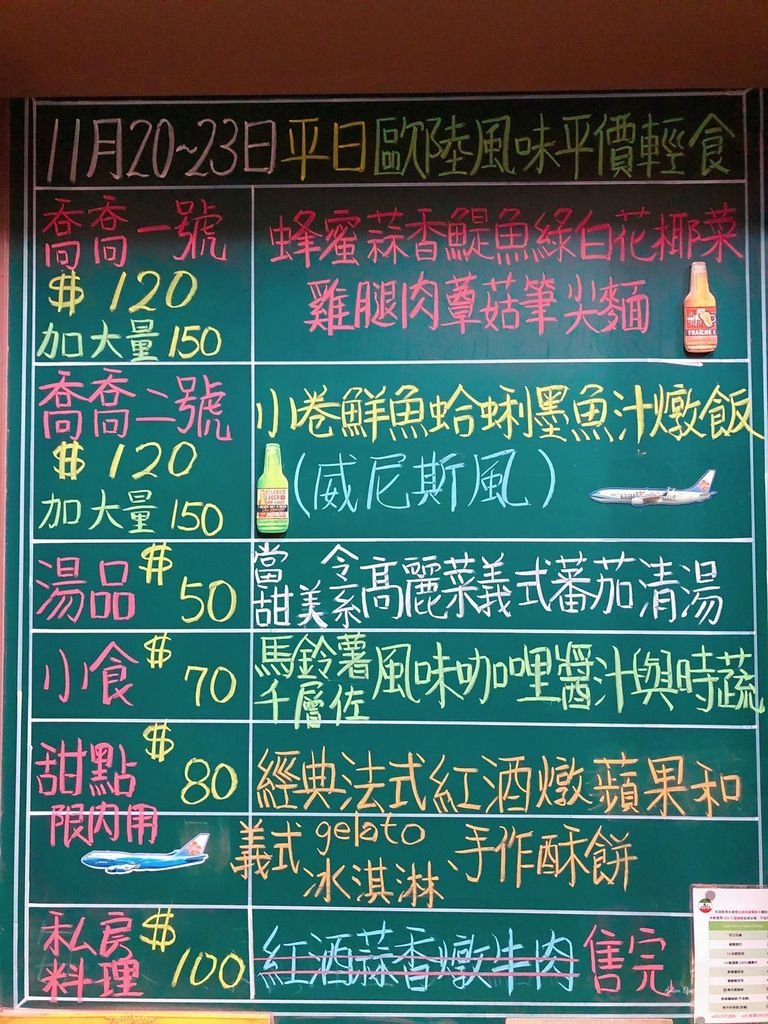 11月20~23日平日歐陸風味平價輕食
喬喬一號
$120
加大量150
蜂蜜蒜香鯷魚綠白花椰菜
雞腿肉蕈菇筆尖麵
FRAÎCHE
喬喬二號
$120
加大量150
小卷鮮魚蛤蜊墨魚汁燉飯
(威尼斯風)
LAGER
湯品 $50
當令
甜美系高麗菜義式蕃茄清湯
小食 $70
馬鈴薯
千層佐風味咖哩醬汁與時蔬
甜點 $80
限內用
經典法式紅酒燉蘋果和
義式gelato
冰淇淋、手作酥餅
私房
料理 $100
紅酒蒜香燉牛肉 售完